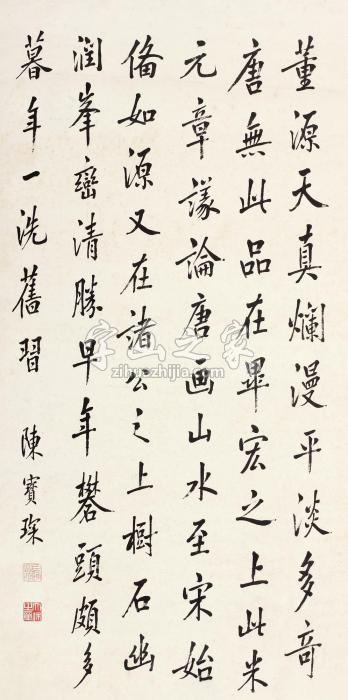 董源天真爛漫平淡多奇
唐無此品在畢宏之上此米
元章議論唐画山水至宋始
俻如源又在諸公之上樹石幽
潤峯巒清勝早年礬頭頗多
暮年一洗舊習
陳寶琛
字画之家
zihuazhijia.com